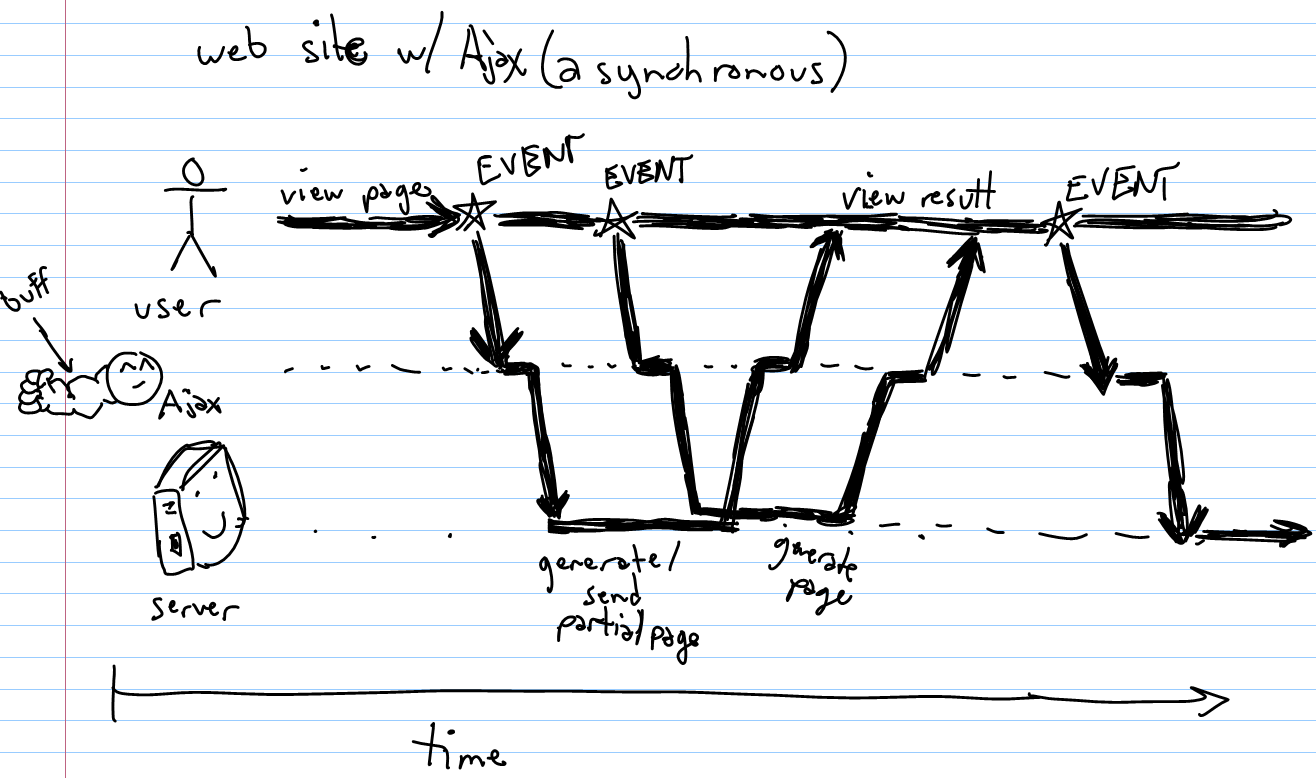 web site w/ Ajax (asynchronous)
EVENT
EVENT
EVENT
view page
view result
user
buff
Ajax
server
generate/
send
partial page
generate
page
time